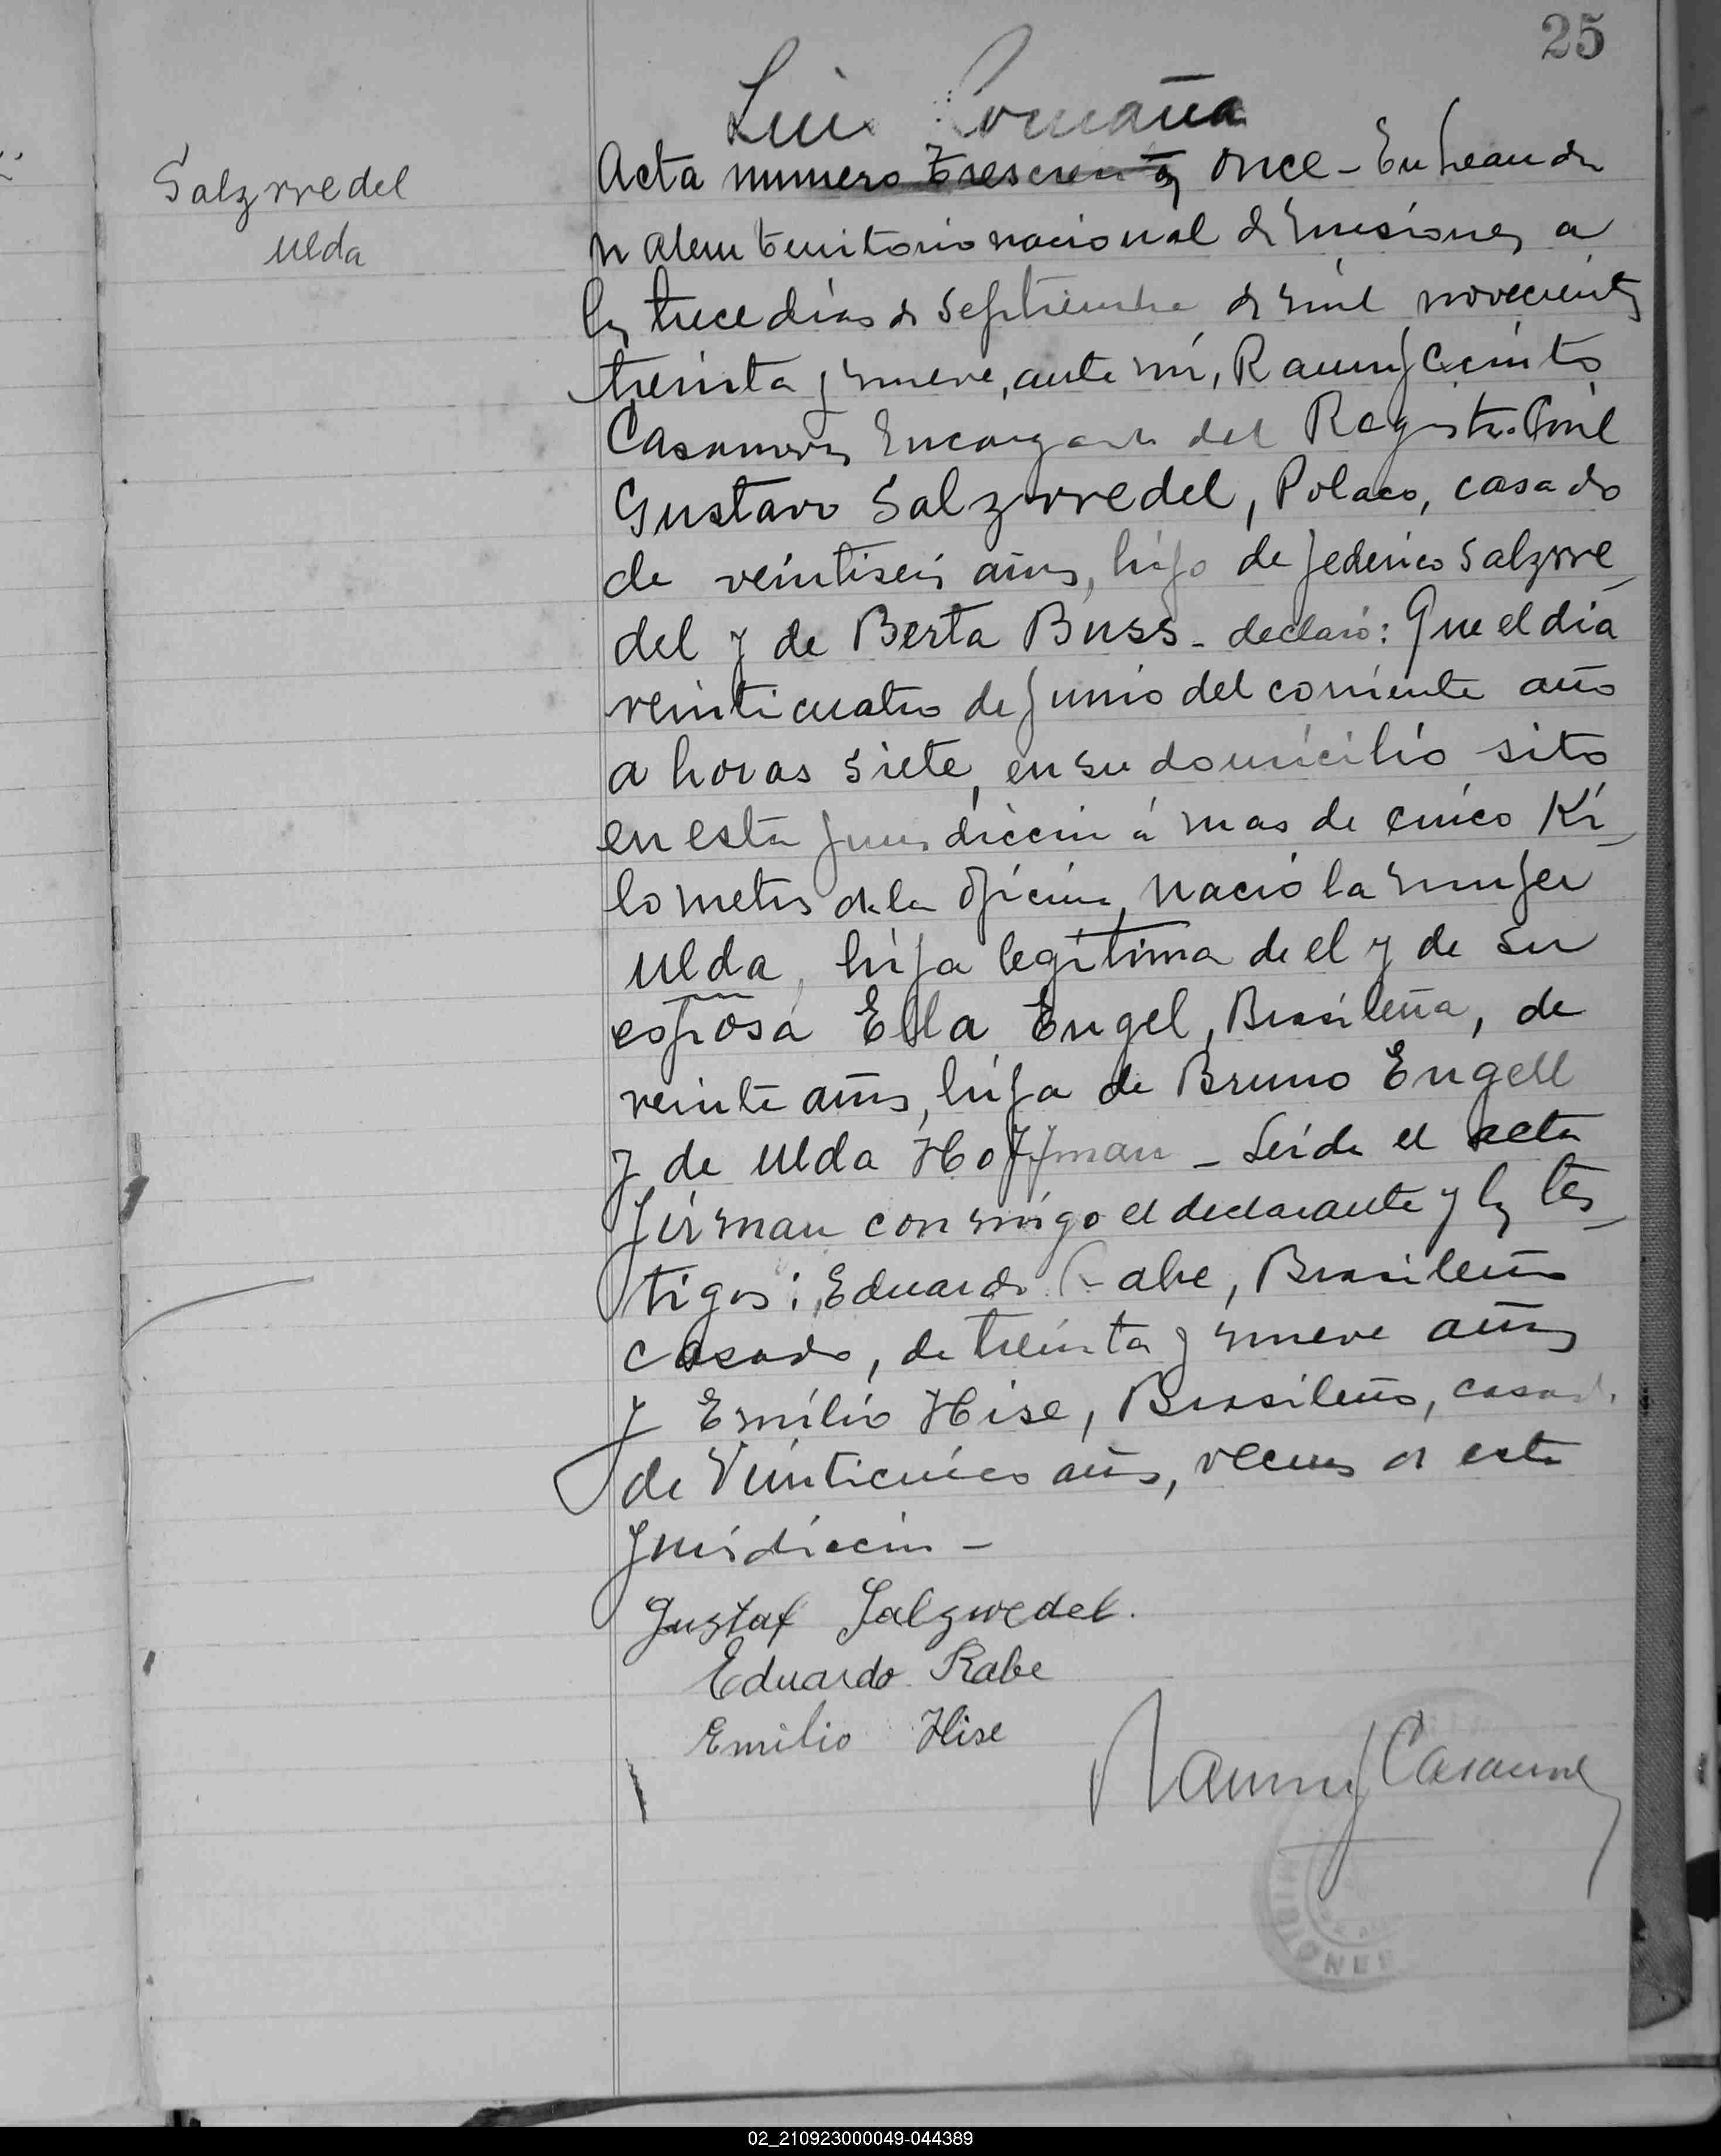 25
Luis Romaña
Salzwedel
Ulda
Acta numero Trescientos once - En Leandro
N Alem territorio nacional de Misiones a
los trece dias de Septiembre de mil novecientos
treinta y nueve, ante mi, Ramon Jacinto
Casanova Encargado del Registro Civil
Gustavo Salzwedel, Polaco, casado
de veintiseis años, hijo de Federico Salzwe_
del y de Berta Buss - declaró: Que el dia
veinticuatro de Junio del corriente año
a horas siete, en su domicilio sito
en esta Jurisdiccion á mas de cinco Ki_
lometros de la oficina, nació la mujer
Ulda, hija legítima de el y de su
esposa Ella Engel, Brasileña, de
veinte años, hija de Bruno Engell
y de Ulda Hoffman - Leida el acta
firman conmigo el declarante y los tes_
tigos: Eduardo Rabe, Brasileño
casado, de treinta y nueve años
y Emilio Hise, Brasileño, casado
de veinticinco años, vecinos de esta
Jurisdiccion -
Gustaf Salzwedel.
Eduardo Rabe
Emilio Hise
Ramon J Casanova
MISIONES
02_210923000049-044389